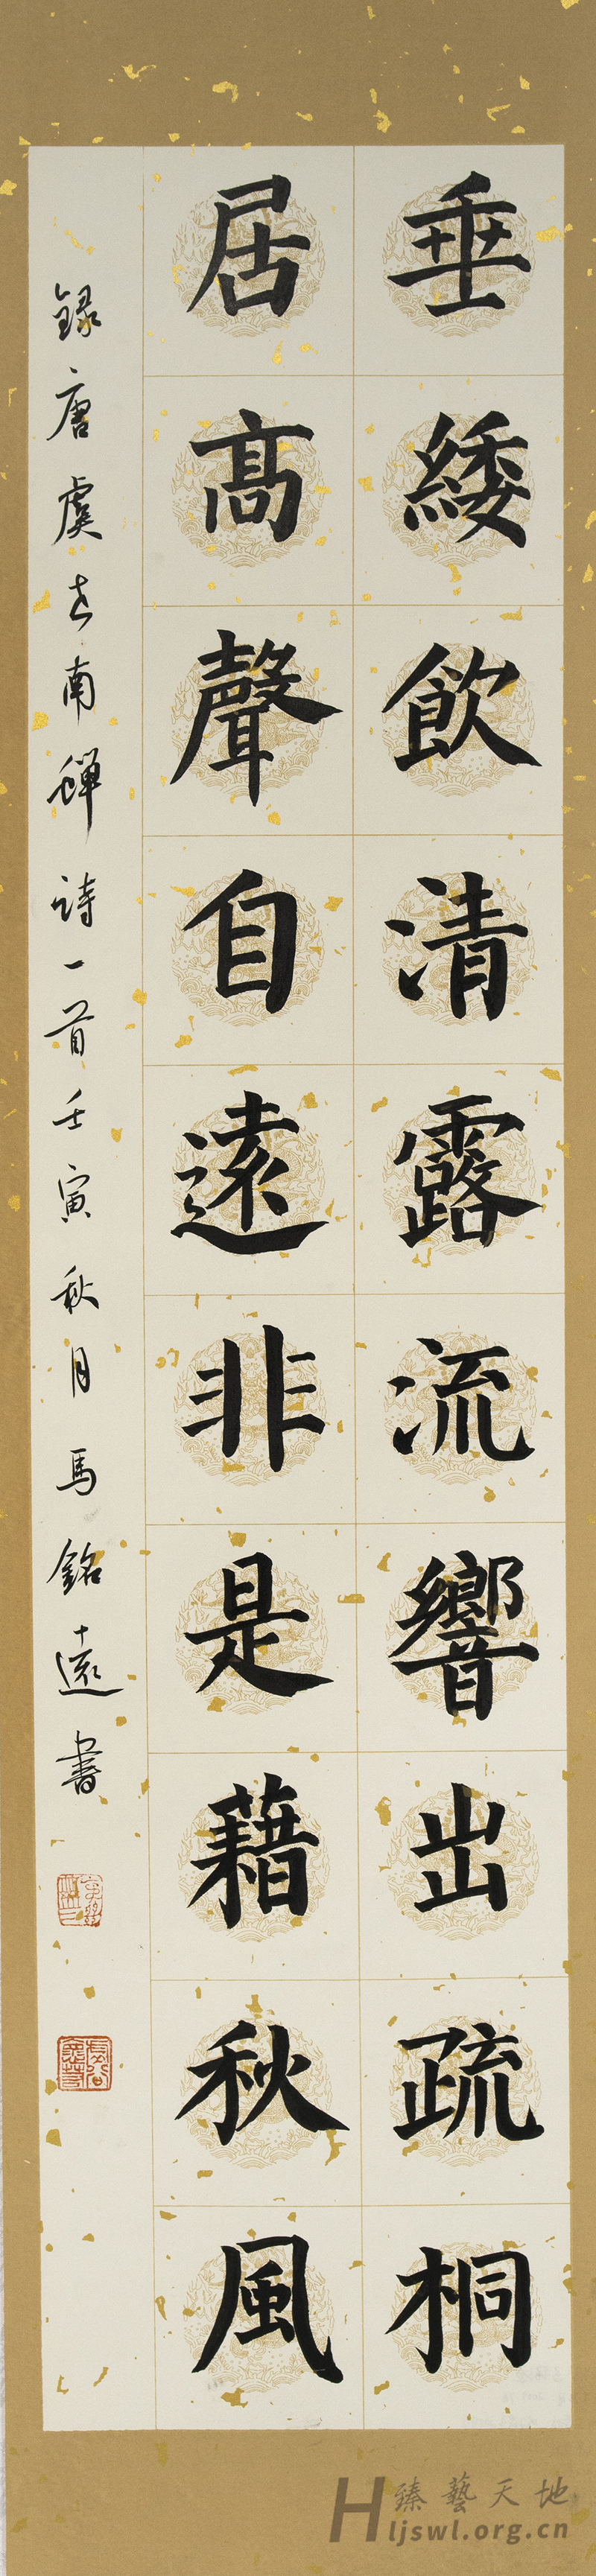 垂緌飲清露流響出疏桐
居高聲自遠非是藉秋風
錄唐虞世南蟬詩一首壬寅秋月馬銘遠書
臻藝天地
Hljswl.org.cn